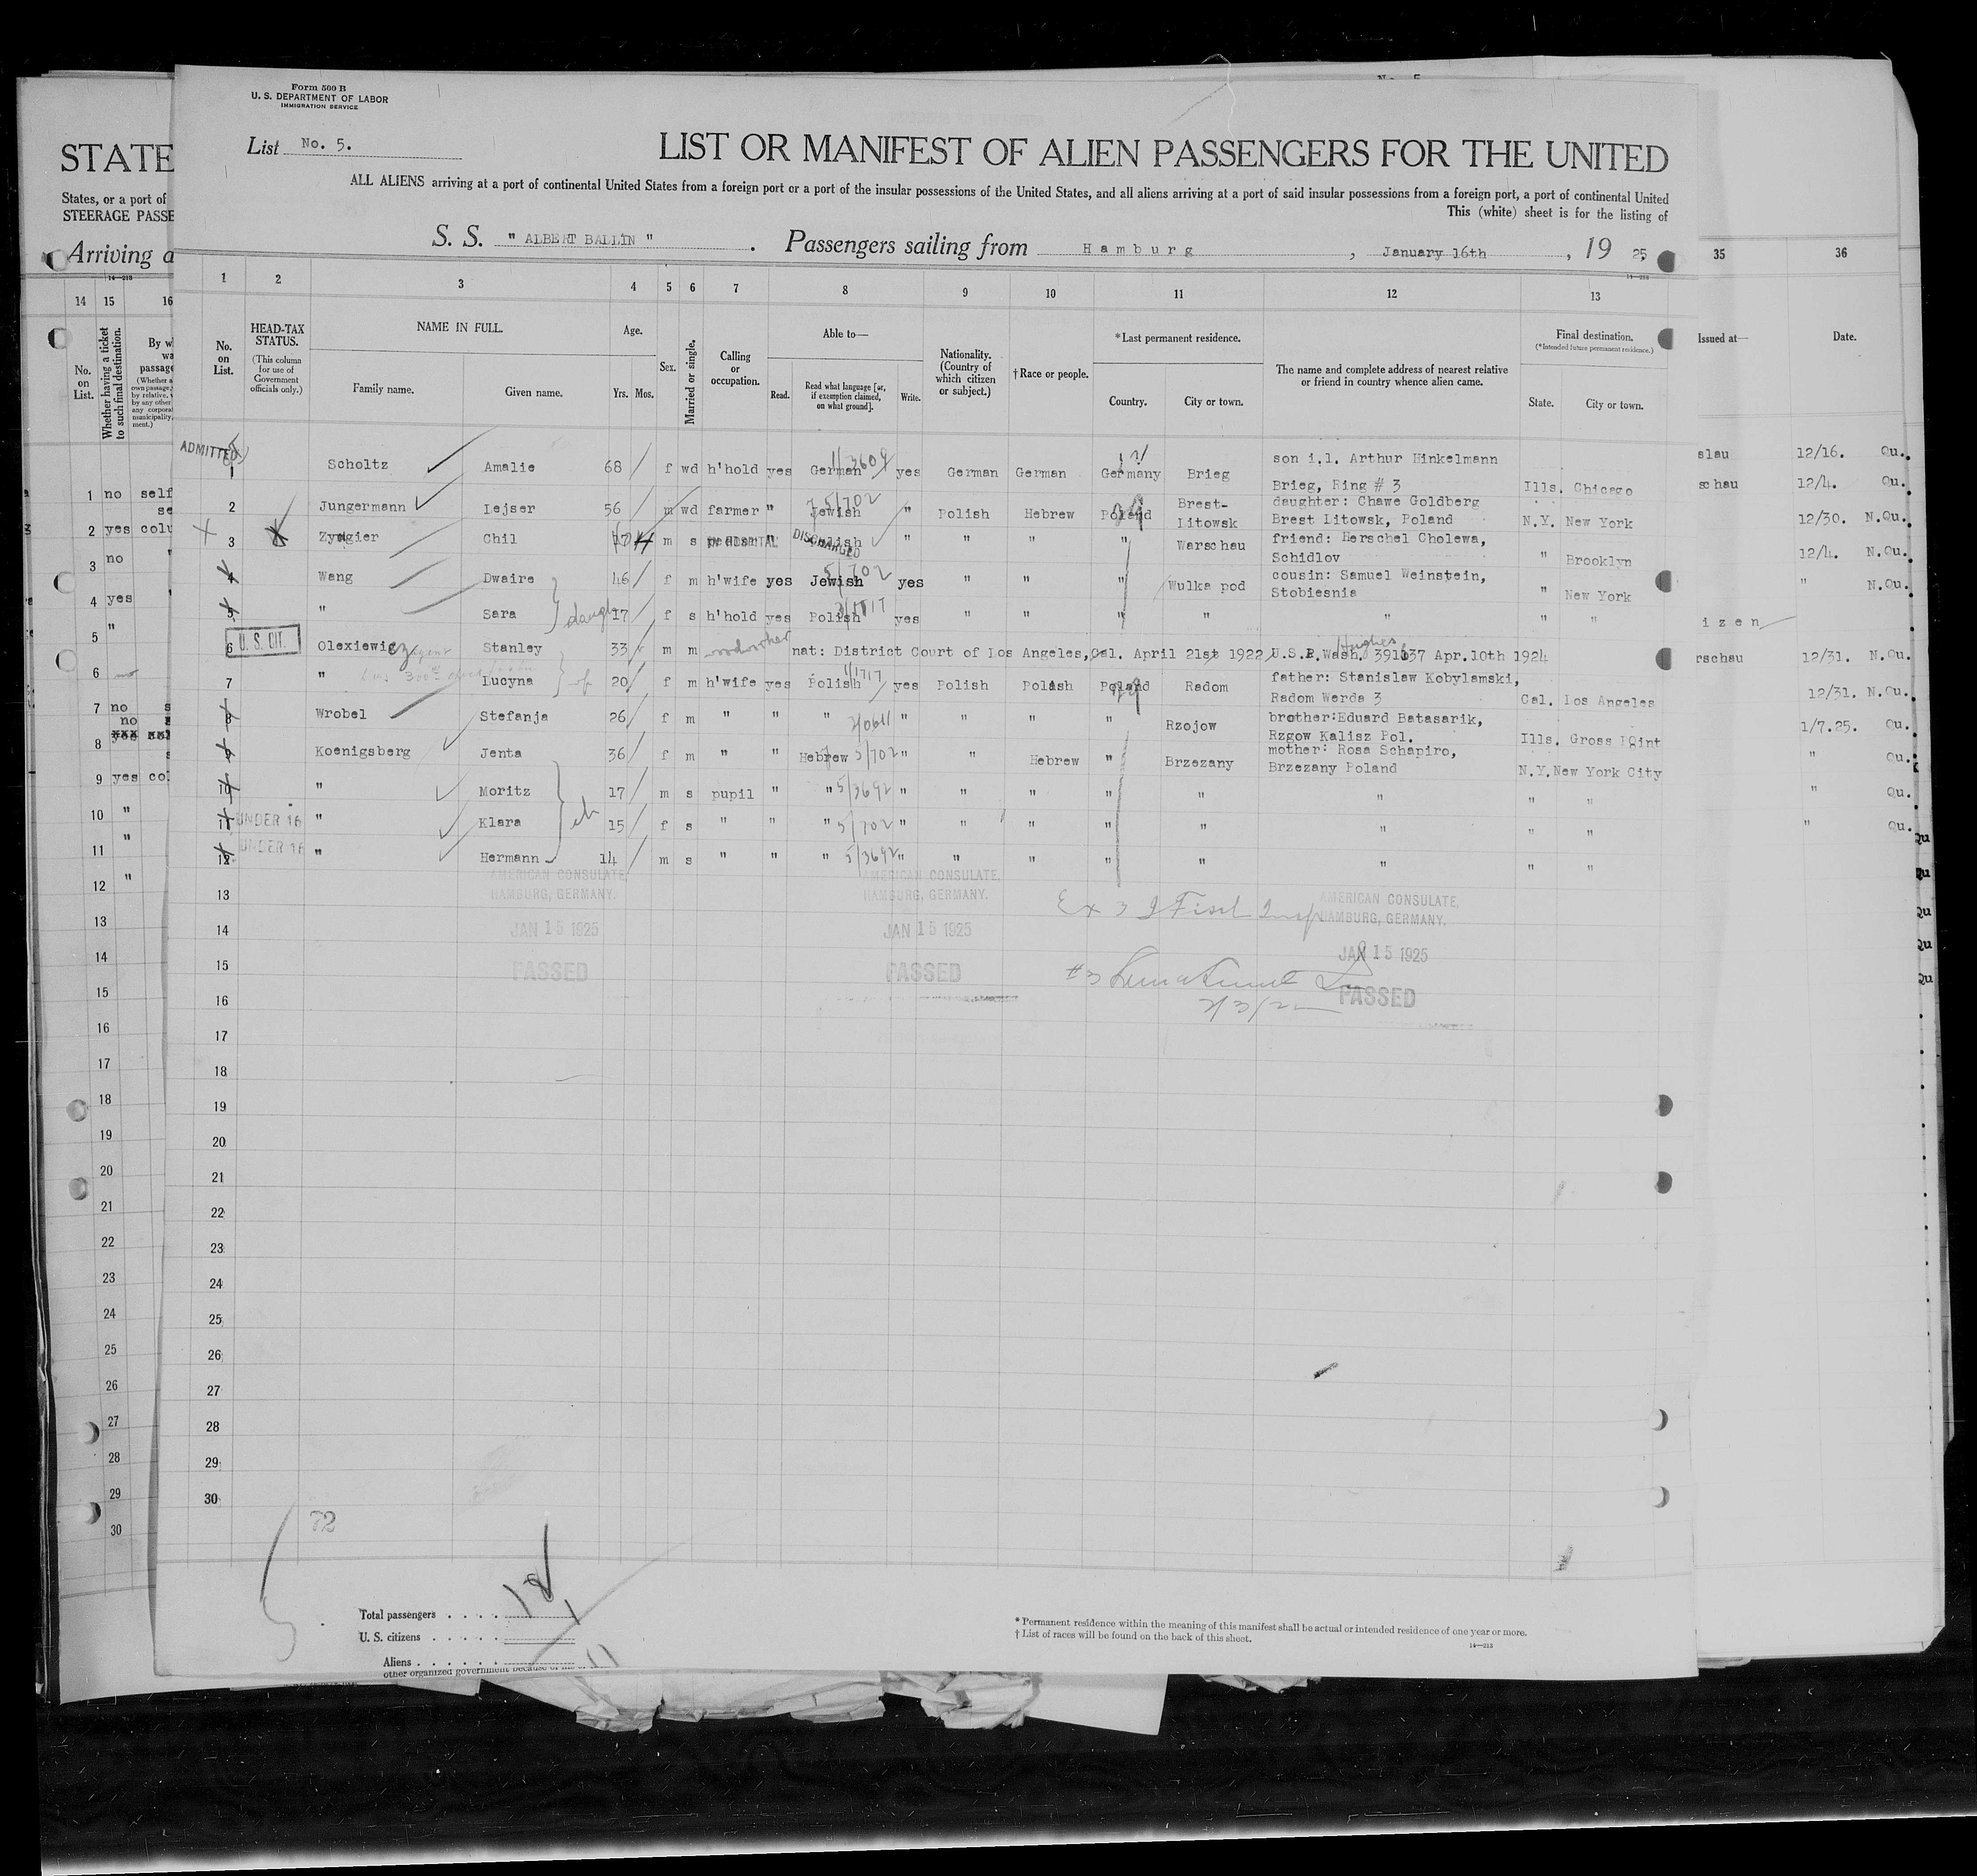 Form 500 B
U. S. DEPARTMENT OF LABOR
IMMIGRATION SERVICE
List No. 5.
LIST OR MANIFEST OF ALIEN PASSENGERS FOR THE UNITED
ALL ALIENS arriving at a port of continental United States from a foreign port or a port of the insular possessions of the United States, and all aliens arriving at a port of said insular possessions from a foreign port, a port of continental United
This (white) sheet is for the listing of
S. S. " ALBERT BALLIN " . Passengers sailing from Hamburg , January 16th , 19 25.
STATE
States, or a port of
STEERAGE PASSE
Arriving a
1 2 3 4 5 6 7 8 9 10 11 12 13
No. on List.
HEAD-TAX STATUS.
(This column for use of Government officials only.)
NAME IN FULL.
Family name. Given name.
Age.
Yrs. Mos.
Sex.
Married or single.
Calling or occupation.
Able to—
Read. Read what language [or, if exemption claimed, on what ground]. Write.
Nationality. (Country of which citizen or subject.)
† Race or people.
*Last permanent residence.
Country. City or town.
The name and complete address of nearest relative or friend in country whence alien came.
Final destination.
(*Intended future permanent residence.)
State. City or town.
14 15 16
No. on List.
Whether having a ticket to such final destination.
35 36
Issued at— Date.
ADMITTED
1 Scholtz Amalie 68 f wd h'hold yes German yes German German Germany Brieg son i.l. Arthur Hinkelmann
Brieg, Ring # 3 Ills. Chicago
2 Jungermann Lejser 56 m wd farmer " Jewish " Polish Hebrew Poland Brest-Litowsk daughter: Chawe Goldberg
Brest Litowsk, Poland N.Y. New York
3 Zyngier Chil m s IN HOSPITAL " Polish DISCHARGED " " " " Warschau friend: Herschel Cholewa,
Schidlov " Brooklyn
4 Wang Dwaire 46 f m h'wife yes Jewish yes " " " Wulka pod cousin: Samuel Weinstein,
Stobiesnia " New York
5 " Sara daugh 17 f s h'hold yes Polish yes " " " " " " "
6 U. S. CIT. Olexiewicz Stanley 33 m m nat: District Court of Los Angeles, Cal. April 21st 1922, U.S.P. Wash. Hughes 391637 Apr.10th 1924
7 " Lucyna 20 f m h'wife yes Polish yes Polish Polish Poland Radom father: Stanislaw Kobylamski,
Radom Werda 3 Cal. Los Angeles
8 Wrobel Stefanja 26 f m " " " " " " " Rzojow brother:Eduard Batasarik,
Rzgow Kalisz Pol. Ills. Gross Point
9 Koenigsberg Jenta 36 f m " " Hebrew " " Hebrew " Brzezany mother: Rosa Schapiro,
Brzezany Poland N.Y. New York City
10 " Moritz 17 m s pupil " " " " " " " " " "
11 UNDER 16 " Klara 15 f s " " " " " " " " " " "
12 UNDER 16 " Hermann 14 m s " " " " " " " " " " "
AMERICAN CONSULATE,
HAMBURG, GERMANY.
JAN 15 1925
PASSED
AMERICAN CONSULATE,
HAMBURG, GERMANY.
JAN 15 1925
PASSED
AMERICAN CONSULATE,
HAMBURG, GERMANY.
JAN 15 1925
PASSED
13
14
15
16
17
18
19
20
21
22
23
24
25
26
27
28
29
30
72
1 no self
2 yes
3 no
4 yes
5 "
6 no
7 no
8
9 yes
10 "
11 "
12 "
13
14
15
16
17
18
19
20
21
22
23
24
25
26
27
28
29
30
slau 12/16. Qu.
schau 12/4. Qu.
12/30. N.Qu.
12/4. N.Qu.
" N.Qu.
izen
rschau 12/31. N.Qu.
12/31. N.Qu.
1/7.25. Qu.
" Qu.
" Qu.
" Qu.
Total passengers
U. S. citizens
Aliens
* Permanent residence within the meaning of this manifest shall be actual or intended residence of one year or more.
† List of races will be found on the back of this sheet.
14—213